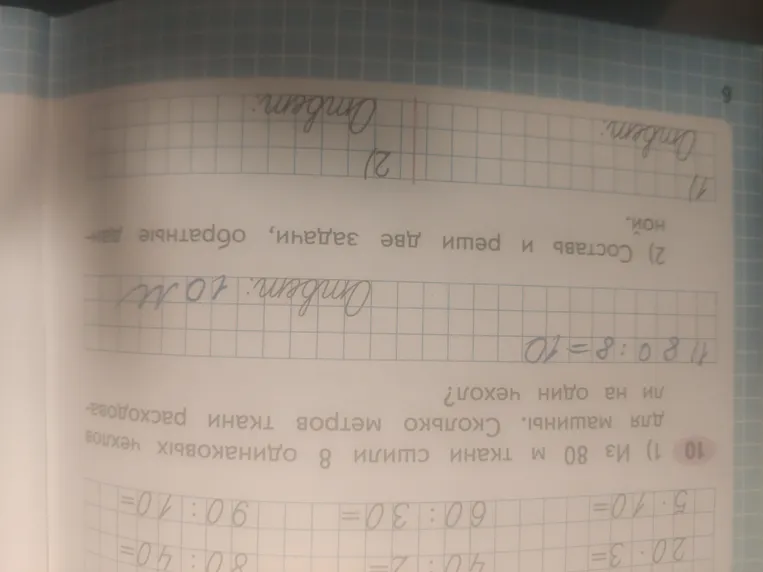 20 · 3= 40 : 2= 80 : 40=
5 · 10= 60 : 30= 90 : 10=
10 1) Из 80 м ткани сшили 8 одинаковых чехлов
для машины. Сколько метров ткани расходова-
ли на один чехол?
1) 80 : 8 = 10
Ответ: 10 м
2) Составь и реши две задачи, обратные дан-
ной.
1) 2)
Ответ: Ответ:
6